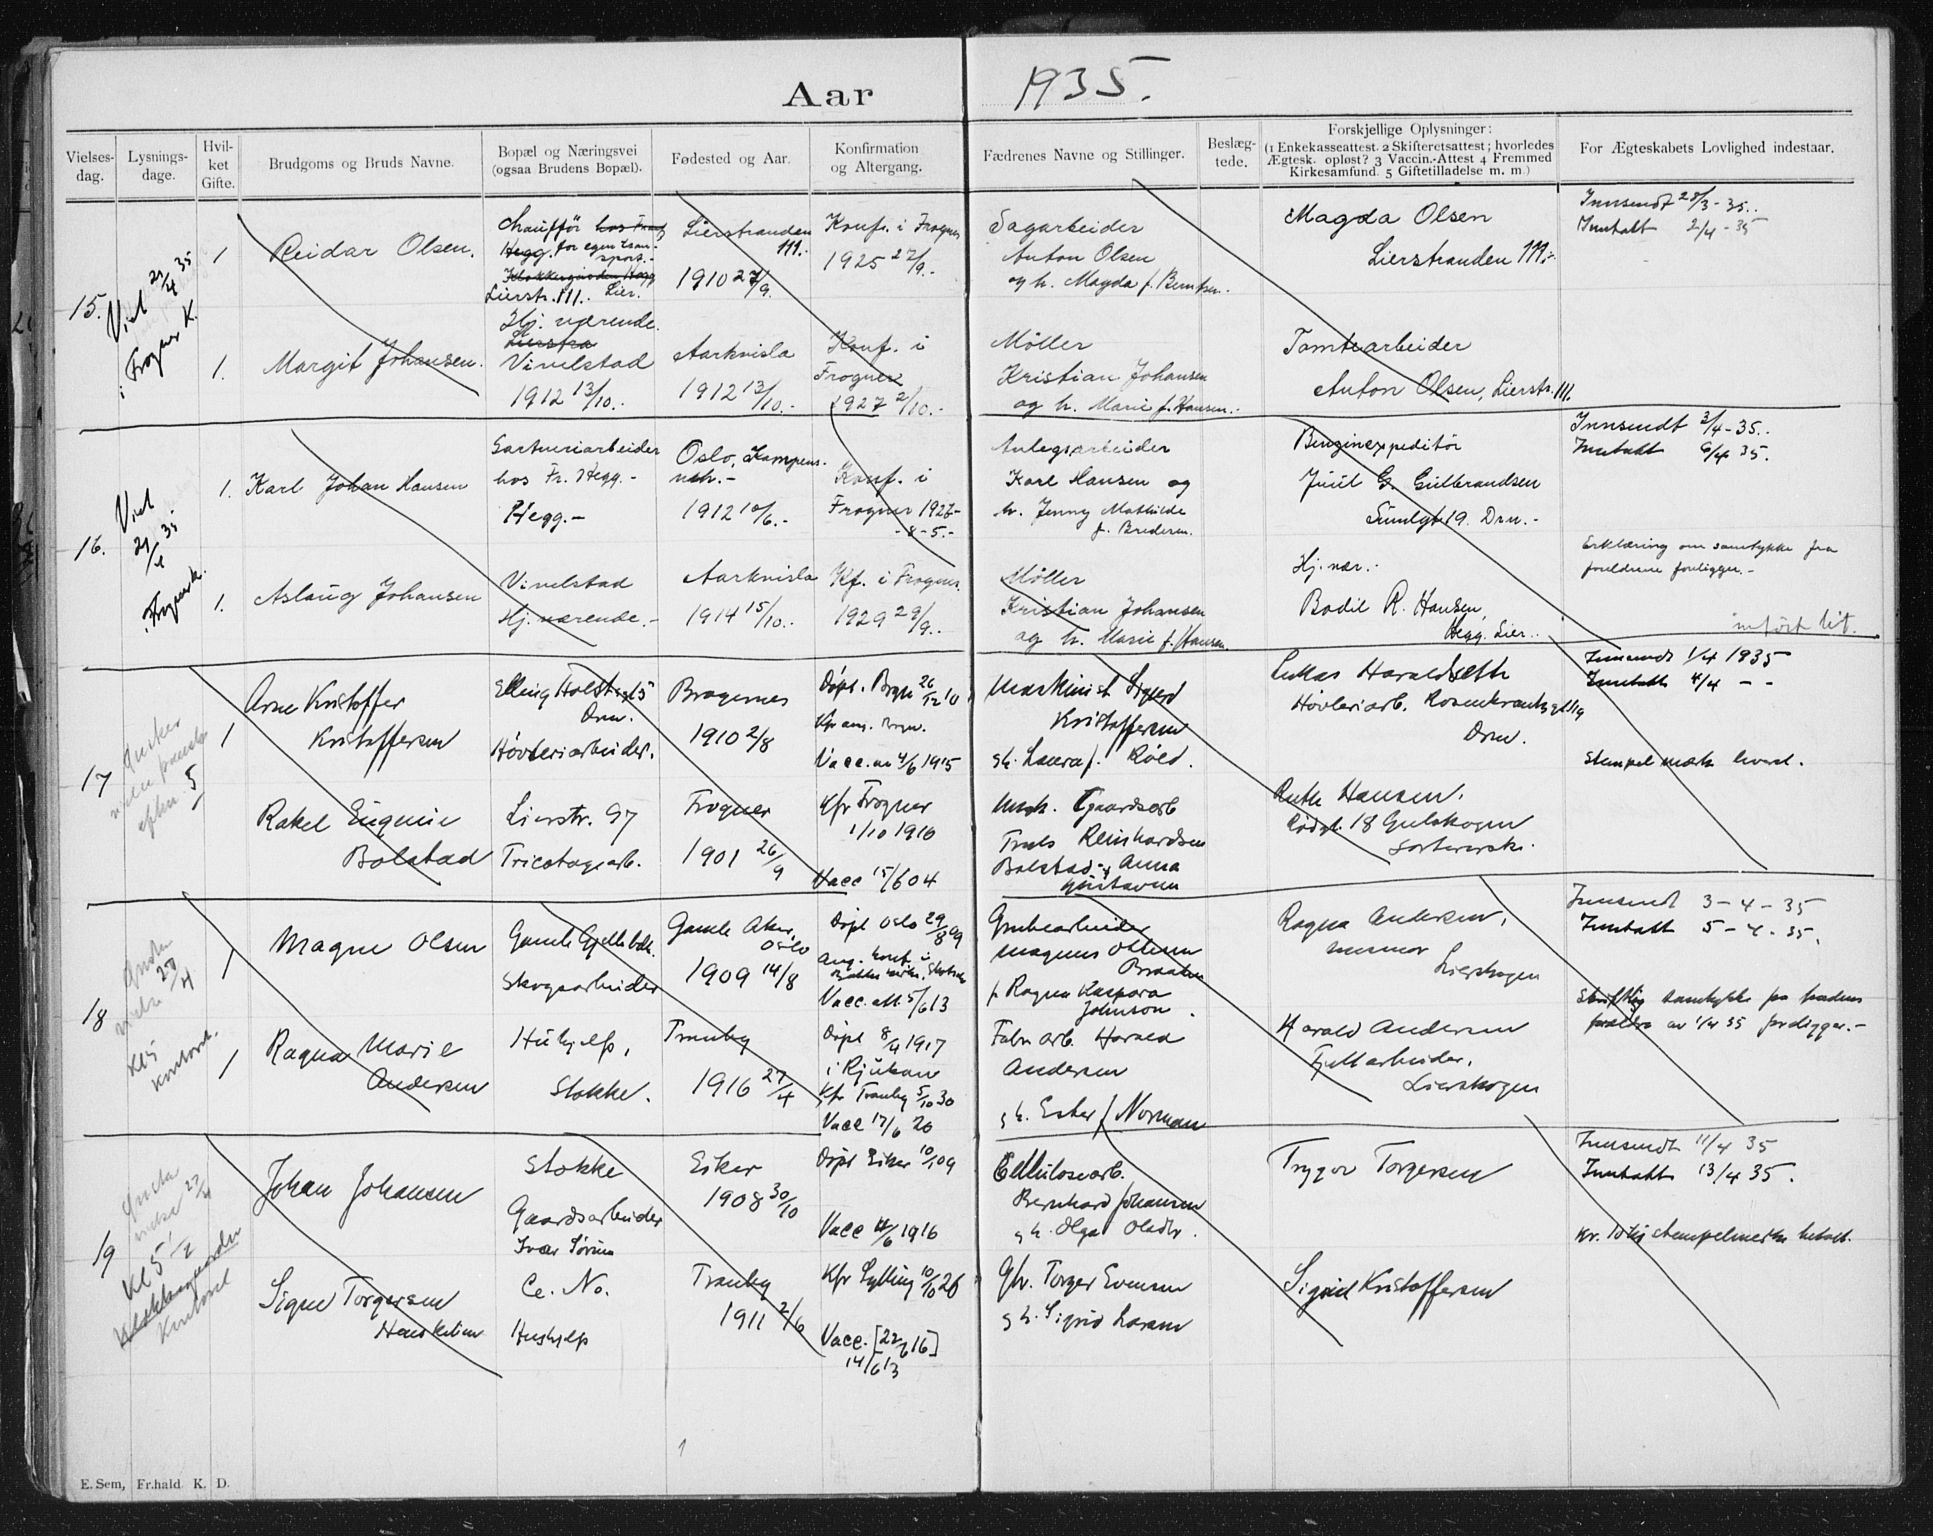 Aar 1935.
Vielses-dag. Lysnings-dage. Hvil-ket Gifte. Brudgoms og Bruds Navne. Bopæl og Næringsvei (ogsaa Brudens Bopæl). Fødested og Aar. Konfirmation og Altergang. Fædrenes Navne og Stillinger. Beslæg-tede. Forskjellige Oplysninger: (1 Enkekasseattest. 2 Skifteretsattest; hvorledes Ægtesk. opløst? 3 Vaccin.-Attest 4 Fremmed Kirkesamfund. 5 Giftetilladelse m. m.) For Ægteskabets Lovlighed indestaar.
15.
Viet 27/4 35
i Frogner K.
1
Reidar Olsen.
Chauffør hos Franz
Hegg. for egen tran-
sport.-
Klokkergården Hegg
Lierstr. 111. Lier.
Lierstranden
111.-
1910 27/9.
Konf. i Frogner
1925 27/9.-
Sagarbeider
Anton Olsen
og h. Magda f. Berntsen.
Magda Olsen
Lierstranden 111.-
Innsendt 28/3-35.
Inntatt 2/4-35
1.
Margit Johansen.
Hj. værende.
Lierstra
Vivelstad
1912 13/10.-
Aarkvisla
1912 13/10.-
Konf. i
Frogner
1927 2/10.-
Møller
Kristian Johansen
og h. Marie f. Hansen.-
Tomtearbeider
Anton Olsen, Lierstr. 111.
16.
Viet
27/4 35
i Frogner k.
1.
Karl Johan Hansen
Gartneriarbeider
hos Fr. Hegg.-
Hegg.-
Oslo, Kampens-
1912 10/6.-
Konf. i
Frogner 1927-
-8-5.-
Anlegsarbeider
Karl Hansen og
h. Jenny Mathilde
f. Bredesen.
Benzinexpeditør
Juul G. Gulbrandsen
19. Drn.-
Innsendt 3/4-35.
Inntatt 6/4 35.
1.
Aslaug Johansen
Vivelstad
Hj. værende.-
Aarkvisla
1914 15/10.-
Kf. i Frogner
1929 29/9.
Møller
Kristian Johansen
og h. Marie f. Hansen.
Hj. vær.-
Bodil R. Hansen,
Hegg. Lier.
Erklæring om samtykke fra
foreldrene foreligger.-
innført lit.
17
Ønsker
vielse pinseda
eften 5
1
Arne Kristoffer
Kristoffersen
Elling Holstsgt 5
Drn.
Høvleriarbeider.
Bragernes
1910 2/8
Døpt. Brgn 26/12 10
Kfr ang. Brgn.
Vacc. au 4/6 1915
Maskinist Sigurd
Kristoffersen
g h. Laura f. Røed.
Lukas Haraldseth
Høvleriarb. Rosenkrantzgt 119
Drn.
Innsendt 1/4 1935
Inntatt 4/4 - -
Stempel merke levert.
Rakel Eugenie
Bolstad
Lierstr. 97
Tricotagearb.
Frogner
1901 26/9
Kfr Frogner
1/10 1916
Vacc 15/6 04
Gaardsarb
Truls Reinhardsen
Bolstad - f Anna
Gustavsen
Ruth Hansen.
18 Gulskogen
18
Ønsker
vielse 27/4
Kl 5
Kontoret.
1
Magne Olsen
Gamle Gjellebek.
Skogsarbeider
Gamle Aker,
Oslo
1909 14/8
Døpt Oslo 29/8 99
Ang. konf. i
Vacc. att 5/6 13
Grubearbeider
Magnus Ottesen
Braaten
f Ragna Kaspara
Johnson.
Ragna Andersen,
Lierskogen
Innsendt 3-4-35
Inntatt 5-4-35.
Skriftlig samtykke fra brudens
foreldre av 1/4 35 foreligger.-
1
Ragna Marie
Andersen
Hushjelp,
Stokke.
Tranby
1916 27/4
Døpt 8/4 1917
i Rjukan
Kfr Tranby 5/10 30
Vacc 17/6 20
Fabr arb. Harald
Andersen
g h. Ester f Norman
Harald Andersen
Fjellarbeider.
Lierskogen
19
Ønsker
vielse 27/4
Kl 5 1/2
Klokkergaarden
Kontoret
Johan Johansen
Stokke
Gaardsarbeider
Ivar Sørum
Eiker
1908 30/10
Døpt Eiker 10/1 09
Vacc 4/6 1916
Cellulosearb.
Bernhard Johansen
g h. Olga Olsdtr.
Trygve Torgersen
Innsendt 11/4 35
Inntatt 13/4 35.
Kr. 10 i stempelmerke betalt.
Signe Torgersen
Ce. No.
Hushjelp
Tranby
1911 2/6
Kfr Sylling 10/10 26
Vacc. [22/6 16]
14/6 13
Gbr. Torger Evensen
g h. Sigrid Larsen
Sigrid Kristoffersen
E. Sem, Fr.hald K. D.